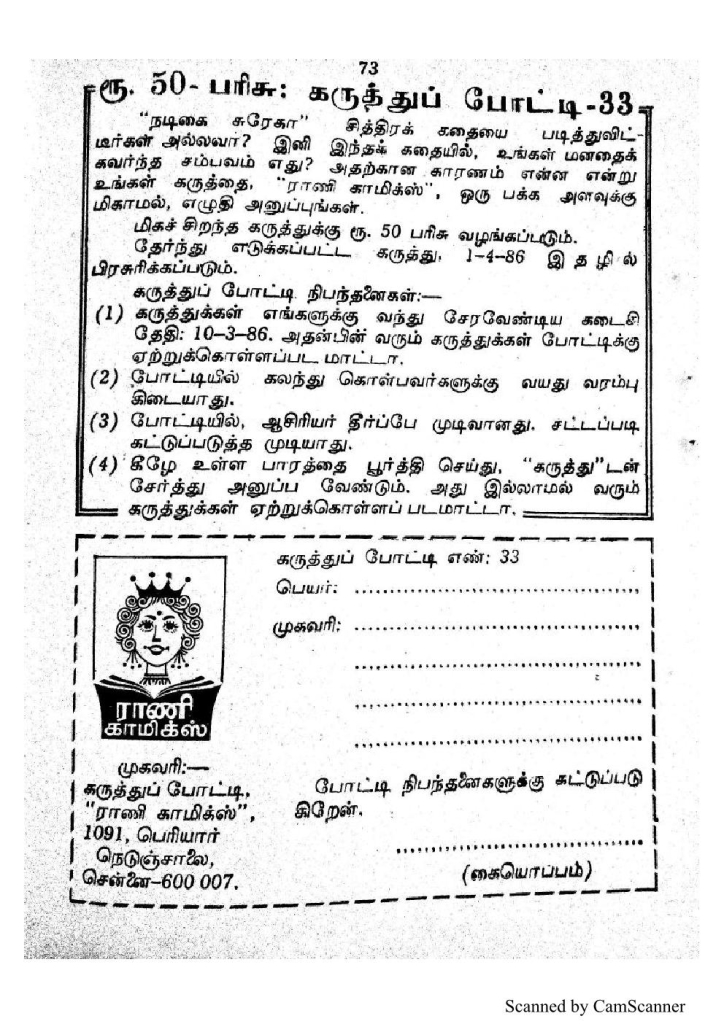 73
ரூ. 50- பரிசு: கருத்துப் போட்டி-33
"நடிகை சுரேகா" சித்திரக் கதையை படித்துவிட்-
டீர்கள் அல்லவா? இனி இந்தக் கதையில், உங்கள் மனதைக்
கவர்ந்த சம்பவம் எது? அதற்கான காரணம் என்ன என்று
உங்கள் கருத்தை, "ராணி காமிக்ஸ்", ஒரு பக்க அளவுக்கு
மிகாமல், எழுதி அனுப்புங்கள்.
மிகச் சிறந்த கருத்துக்கு ரூ. 50 பரிசு வழங்கப்படும்.
தேர்ந்து எடுக்கப்பட்ட கருத்து, 1-4-86 இதழில்
பிரசுரிக்கப்படும்.
கருத்துப் போட்டி நிபந்தனைகள்:—
(1) கருத்துக்கள் எங்களுக்கு வந்து சேரவேண்டிய கடைசி
தேதி: 10-3-86. அதன்பின் வரும் கருத்துக்கள் போட்டிக்கு
ஏற்றுக்கொள்ளப்பட மாட்டா.
(2) போட்டியில் கலந்து கொள்பவர்களுக்கு வயது வரம்பு
கிடையாது.
(3) போட்டியில், ஆசிரியர் தீர்ப்பே முடிவானது. சட்டப்படி
கட்டுப்படுத்த முடியாது.
(4) கீழே உள்ள பாரத்தை பூர்த்தி செய்து, "கருத்து"டன்
சேர்த்து அனுப்ப வேண்டும். அது இல்லாமல் வரும்
கருத்துக்கள் ஏற்றுக்கொள்ளப் படமாட்டா.
கருத்துப் போட்டி எண்: 33
பெயர்: ........................................
முகவரி: ........................................
........................................
........................................
........................................
ராணி
காமிக்ஸ்
முகவரி:—
கருத்துப் போட்டி,
"ராணி காமிக்ஸ்",
1091, பெரியார்
நெடுஞ்சாலை,
சென்னை-600 007.
போட்டி நிபந்தனைகளுக்கு கட்டுப்படு
கிறேன்.
........................................
(கையொப்பம்)
Scanned by CamScanner